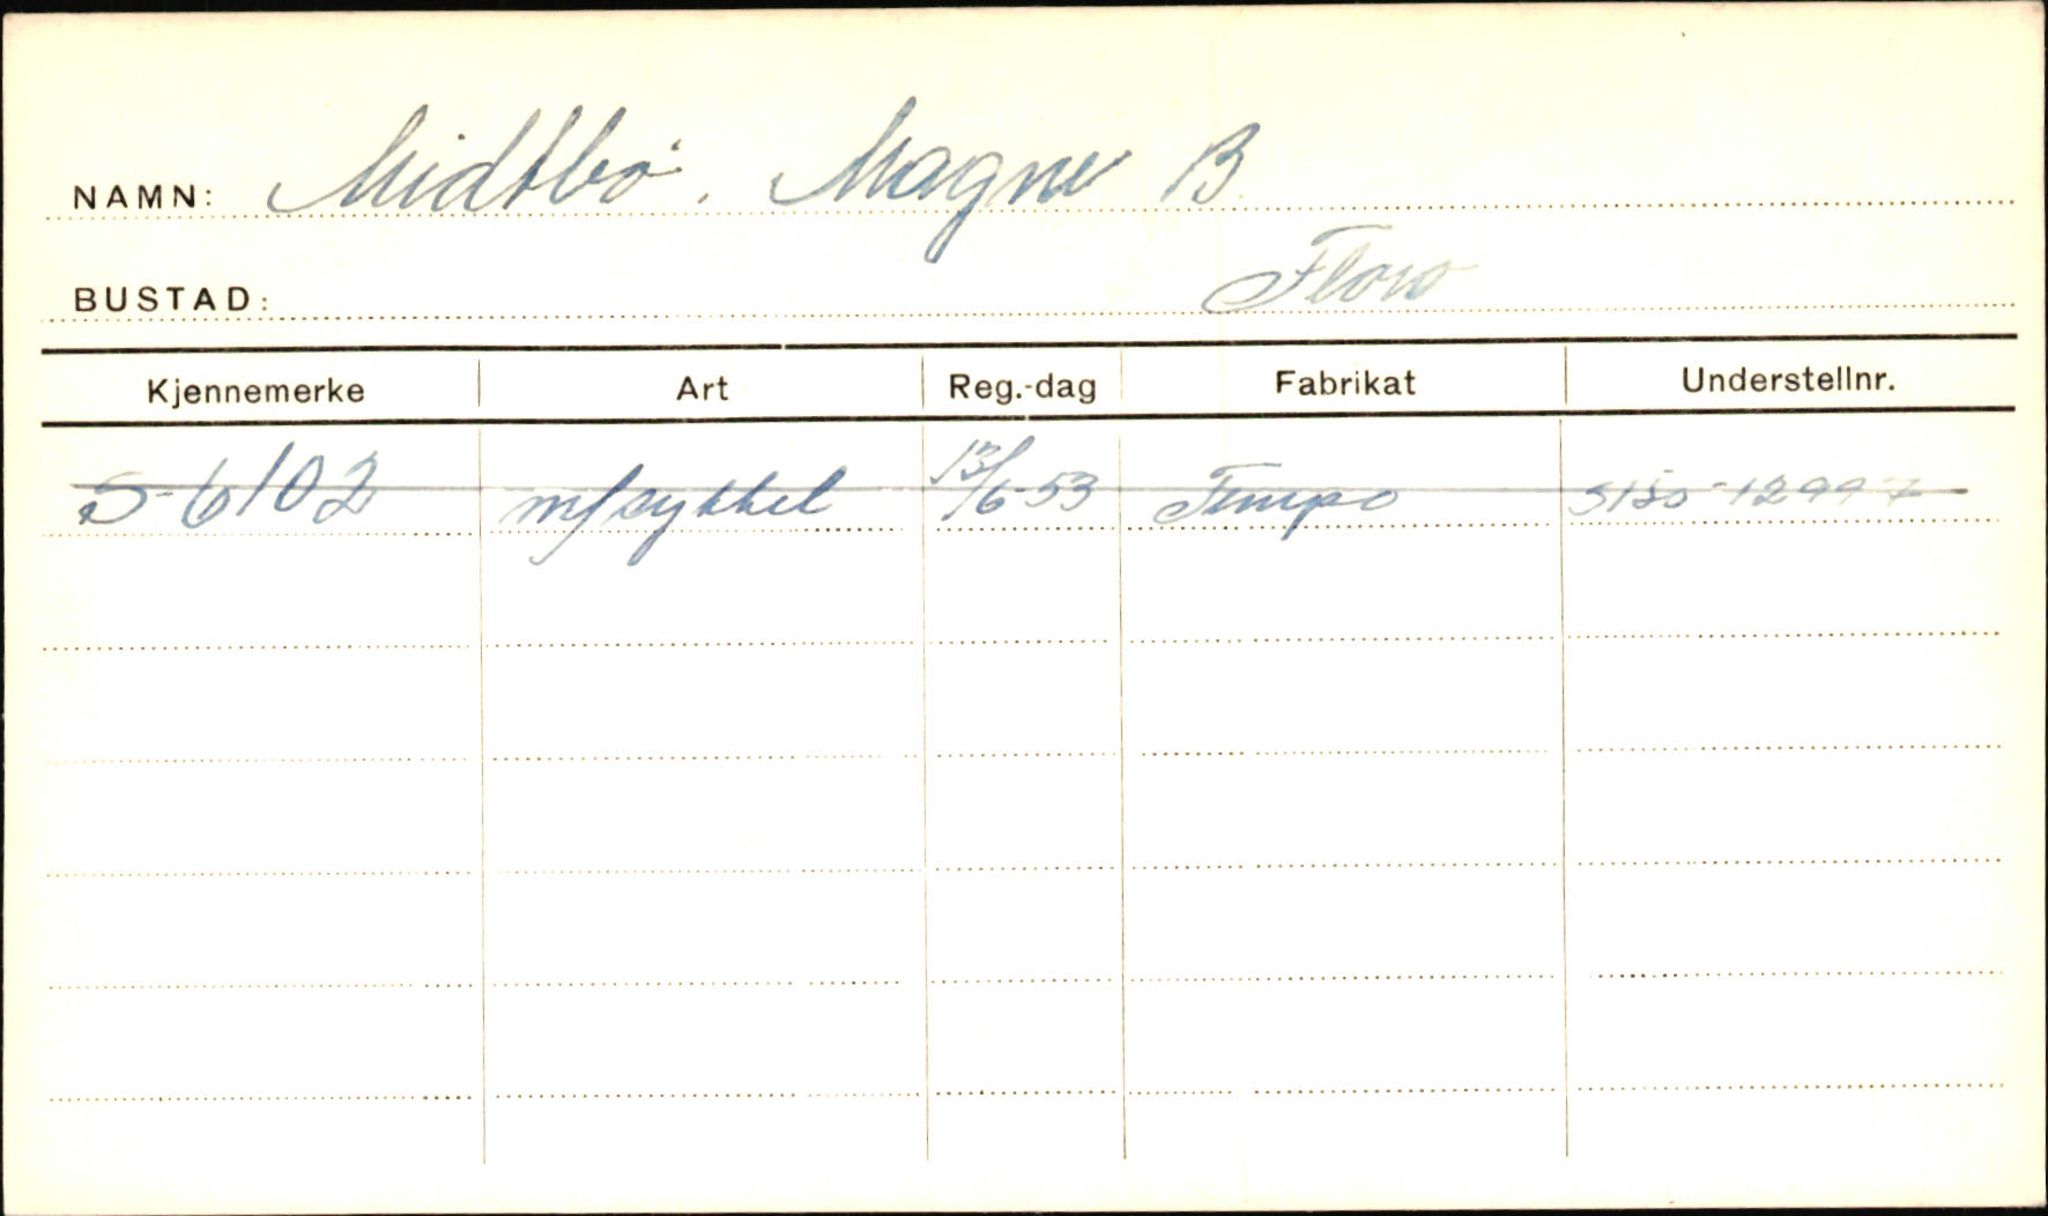 NAMN: Midtbö, Magne B
BUSTAD: Floro
Kjennemerke Art Reg.-dag Fabrikat Understellnr.
S-6102 m/sykkel 13/6-53 Tempo 5150-12997